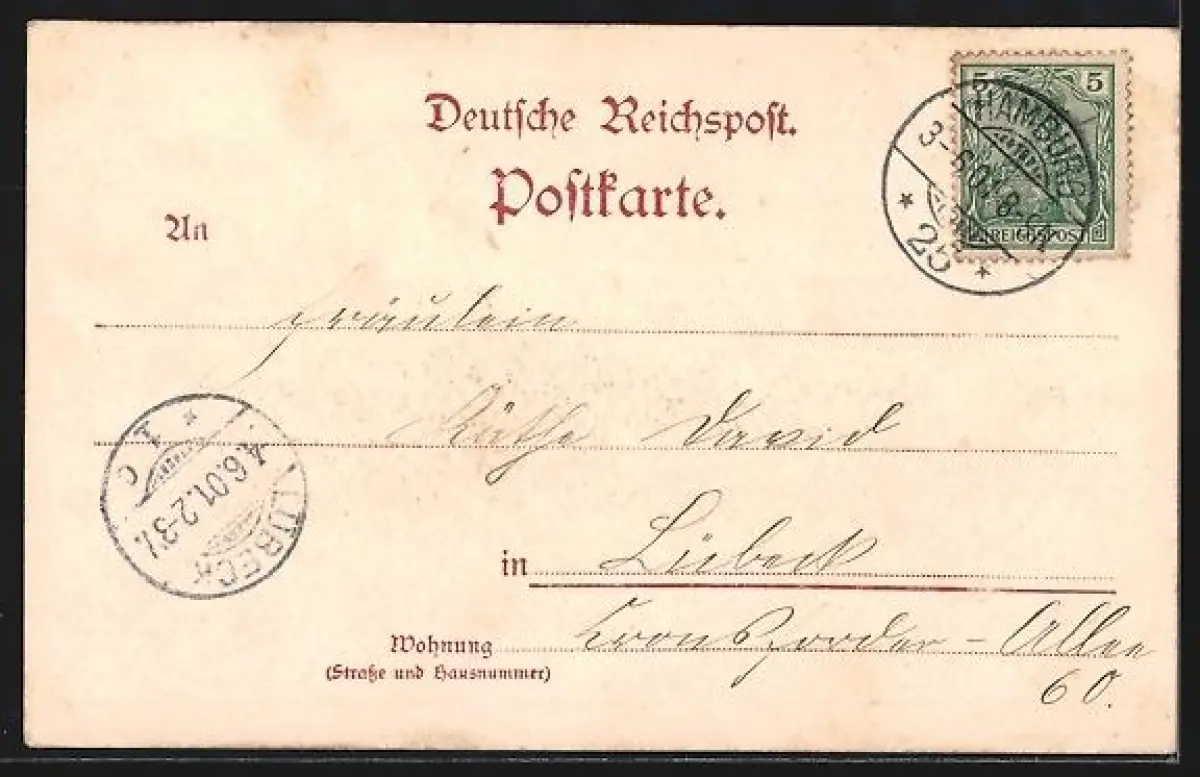 Deutsche Reichspost.
Postkarte.
An
5 5
REICHSPOST
HAMBURG
3-6.01.8-9N.
* 25 *
Fräulein
Käthe David
in Lübeck
Wohnung Cronsforder-Allee
(Straße und Hausnummer)
60.
LÜBECK
4.6.01.2-3V.
* 1 c